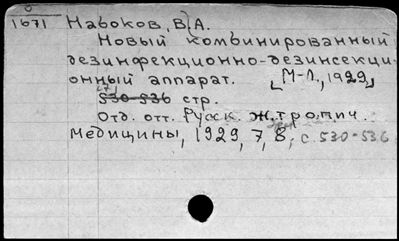 1671 Набоков, В. А.
Новый комбинированный
дезинфекционно-дезинсекци-
онный аппарат. [М-Л., 1929]
530-536 стр.
Отд. отт. Русск. ж. тропич.
медицины, 1929, 7, 8, с. 530-536